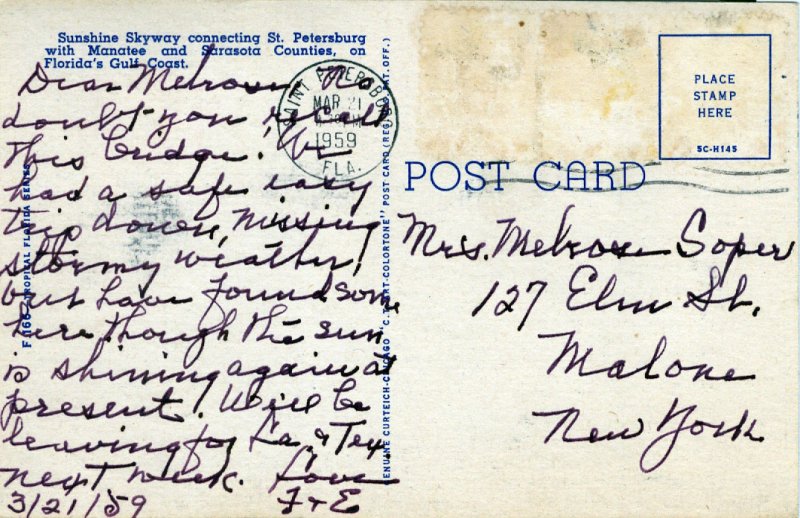 Sunshine Skyway connecting St. Petersburg
with Manatee and Sarasota Counties, on
Florida's Gulf Coast.
Dear Melrose, No
doubt you recall
this bridge! We
had a safe easy
trip down, missing
stormy weather,
but have found some
here though the sun
is shining again at
present! Will be
leaving for La. & Tex.
next week. Love
3/21/59 F + E
SAINT PETERSBURG
MAR 21
PM
1959
FLA.
TROPICAL FLORIDA SERIES
GENUINE CURTEICH-CHICAGO "C.T. ART-COLORTONE" POST CARD (REG. U.S. PAT. OFF.)
PLACE
STAMP
HERE
5C-H145
POST CARD
Mrs. Melrose Soper
127 Elm St.
Malone
New York